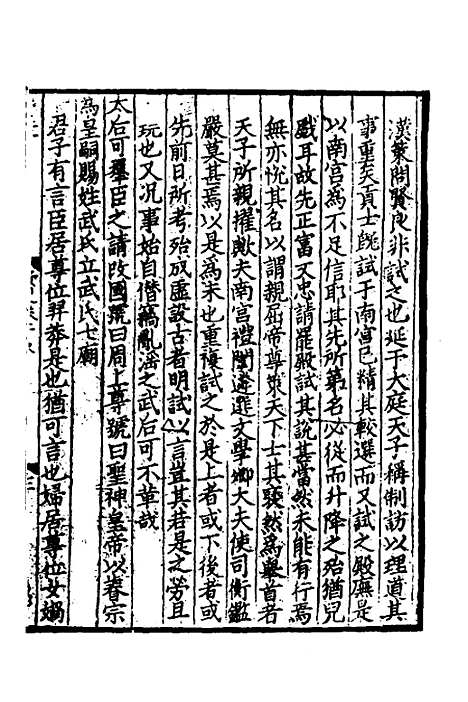 漢策問賢良非試之也延于大庭天子稱制訪以理道其
事重矣貢士既試于南宮已精其較選而又試之殿廡是
以南宮為不足信耶其先所第名必從而升降之殆猶兒
戲耳故先正富文忠請罷殿試其說甚當然未能有行焉
無亦悅其名以謂親屈帝尊策天下士其駭然為舉首者
天子所親擢歟夫南宮禮闈遴選文學卿大夫使司衡鑑
嚴莫甚焉以是為未也重複試之於是上者或下後者或
先前日所考殆成虛設古者明試以言豈其若是之勞且
玩也又况事始自僭竊亂淫之武后可不革哉
太后可羣臣之請改國號曰周上尊號曰聖神皇帝以睿宗
為皇嗣賜姓武氏立武氏七廟
君子有言臣居尊位羿莽是也猶可言也婦居尊位女媧